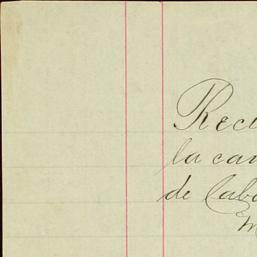 Reci
la can
de Caba
M